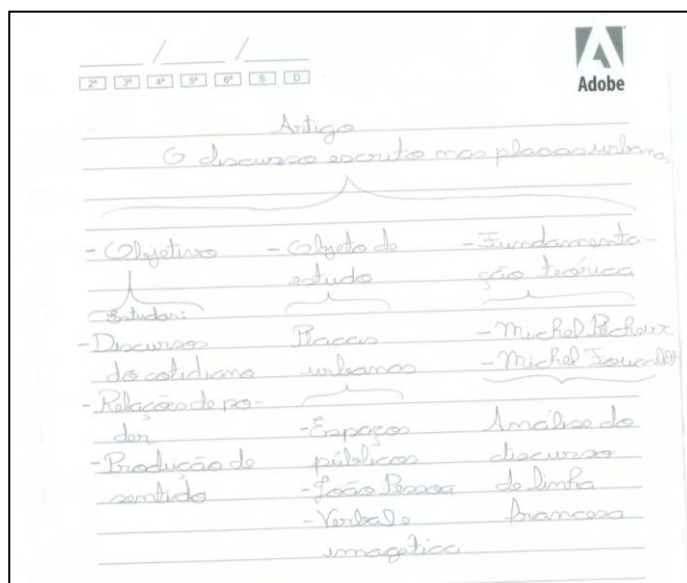 2ª 3ª 4ª 5ª 6ª S D
Adobe
Artigo
O discurso escrito nas placas urbanas
- Objetivo
Estudar:
- Discursos
do cotidiano
- Relações de po-
der
- Produção de
sentido
- Objeto de
estudo
Placas
urbanas
- Espaços
públicos
- João Pessoa
- Verbal e
imagética
- Fundamenta-
ção teórica
- Michel Pêcheux
- Michel Foucault
Análise do
discurso
de linha
francesa